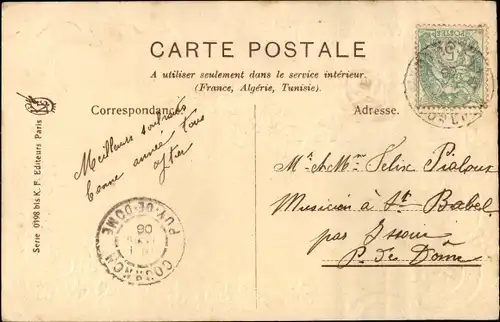 CARTE POSTALE
A utiliser seulement dans le service intérieur.
(France, Algérie, Tunisie).
Correspondance.
Adresse.
Meilleurs souhaits
bonne année à tous
Mr & Mme Felix
Musicien à St Babel
par Issoire
P. de Dôme
PUY-DE-DOME
06
POSTES
Serie 0198 bis K. F. Editeurs Paris